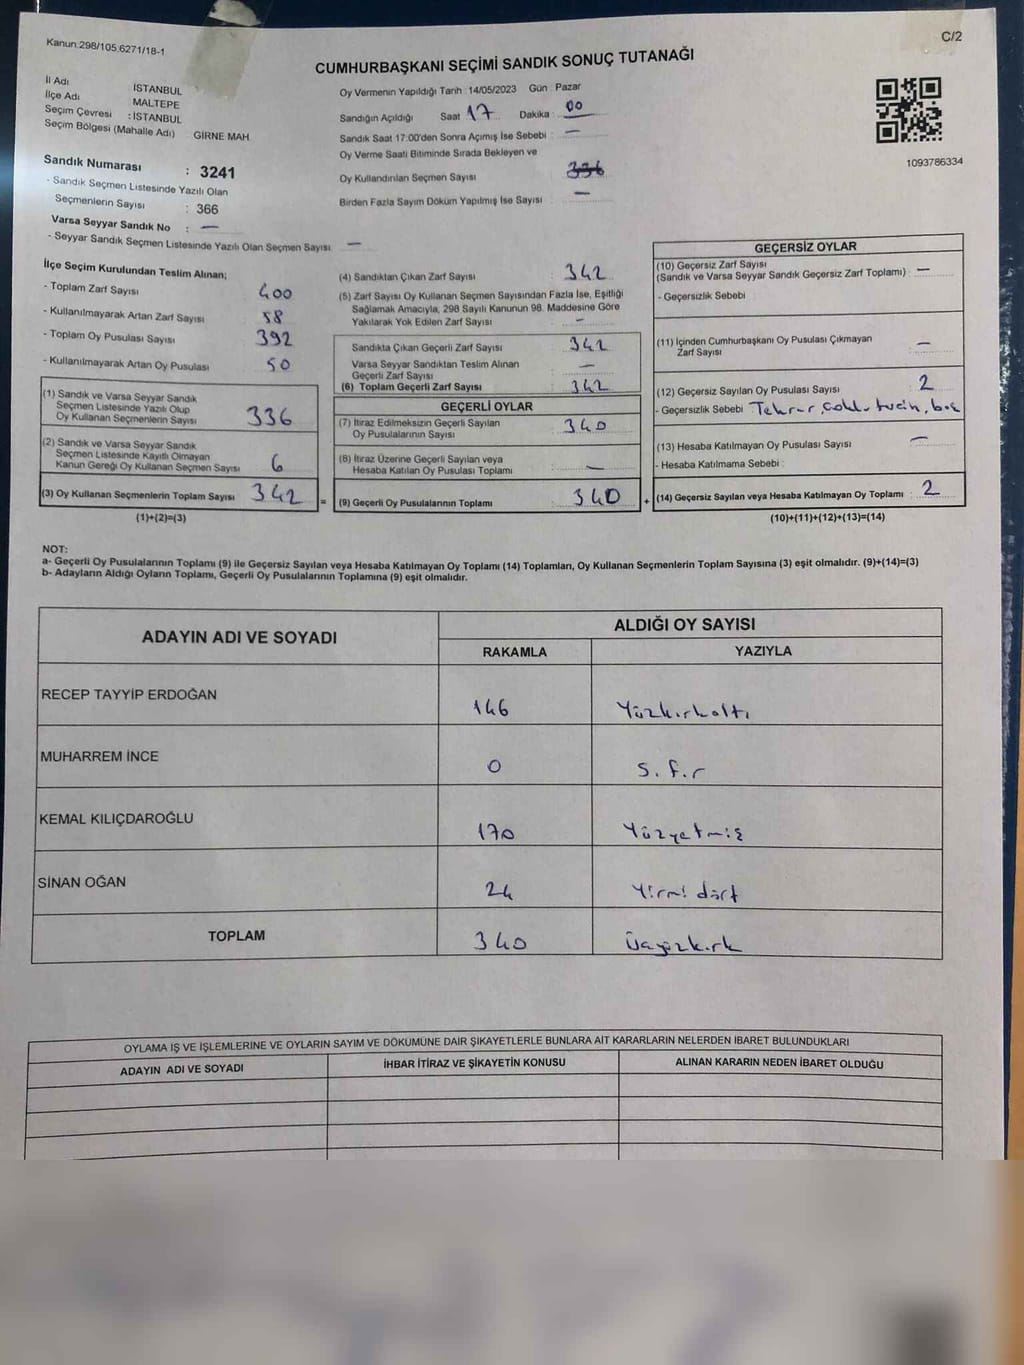 Kanun:298/105.6271/18-1
C/2
CUMHURBAŞKANI SEÇİMİ SANDIK SONUÇ TUTANAĞI
İl Adı : İSTANBUL
İlçe Adı MALTEPE
Seçim Çevresi : İSTANBUL
Seçim Bölgesi (Mahalle Adı) GİRNE MAH.
Sandık Numarası : 3241
- Sandık Seçmen Listesinde Yazılı Olan
Seçmenlerin Sayısı : 366
Varsa Seyyar Sandık No : —
- Seyyar Sandık Seçmen Listesinde Yazılı Olan Seçmen Sayısı —
Oy Vermenin Yapıldığı Tarih : 14/05/2023 Gün : Pazar
Sandığın Açıldığı Saat 17 Dakika : 00
Sandık Saat 17:00'den Sonra Açılmış İse Sebebi : —
Oy Verme Saati Bitiminde Sırada Bekleyen ve
Oy Kullandırılan Seçmen Sayısı 336
Birden Fazla Sayım Döküm Yapılmış İse Sayısı —
1093786334
İlçe Seçim Kurulundan Teslim Alınan;
- Toplam Zarf Sayısı 400
- Kullanılmayarak Artan Zarf Sayısı 58
- Toplam Oy Pusulası Sayısı 392
- Kullanılmayarak Artan Oy Pusulası 50
(1) Sandık ve Varsa Seyyar Sandık
Seçmen Listesinde Yazılı Olup
Oy Kullanan Seçmenlerin Sayısı 336
(2) Sandık ve Varsa Seyyar Sandık
Seçmen Listesinde Kayıtlı Olmayan
Kanun Gereği Oy Kullanan Seçmen Sayısı 6
(3) Oy Kullanan Seçmenlerin Toplam Sayısı 342 =
(1)+(2)=(3)
(4) Sandıktan Çıkan Zarf Sayısı 342
(5) Zarf Sayısı Oy Kullanan Seçmen Sayısından Fazla İse, Eşitliği
Sağlamak Amacıyla, 298 Sayılı Kanunun 98. Maddesine Göre
Yakılarak Yok Edilen Zarf Sayısı —
Sandıkta Çıkan Geçerli Zarf Sayısı 342
Varsa Seyyar Sandıktan Teslim Alınan
Geçerli Zarf Sayısı —
(6) Toplam Geçerli Zarf Sayısı 342
GEÇERLİ OYLAR
(7) İtiraz Edilmeksizin Geçerli Sayılan
Oy Pusulalarının Sayısı 340
(8) İtiraz Üzerine Geçerli Sayılan veya
Hesaba Katılan Oy Pusulası Toplamı —
(9) Geçerli Oy Pusulalarının Toplamı 340 +
GEÇERSİZ OYLAR
(10) Geçersiz Zarf Sayısı
(Sandık ve Varsa Seyyar Sandık Geçersiz Zarf Toplamı) : —
- Geçersizlik Sebebi :
(11) İçinden Cumhurbaşkanı Oy Pusulası Çıkmayan
Zarf Sayısı —
(12) Geçersiz Sayılan Oy Pusulası Sayısı 2
- Geçersizlik Sebebi Tekrar,
(13) Hesaba Katılmayan Oy Pusulası Sayısı —
- Hesaba Katılmama Sebebi :
(14) Geçersiz Sayılan veya Hesaba Katılmayan Oy Toplamı : 2
(10)+(11)+(12)+(13)=(14)
NOT:
a- Geçerli Oy Pusulalarının Toplamı (9) ile Geçersiz Sayılan veya Hesaba Katılmayan Oy Toplamı (14) Toplamları, Oy Kullanan Seçmenlerin Toplam Sayısına (3) eşit olmalıdır. (9)+(14)=(3)
b- Adayların Aldığı Oyların Toplamı, Geçerli Oy Pusulalarının Toplamına (9) eşit olmalıdır.
ADAYIN ADI VE SOYADI
ALDIĞI OY SAYISI
RAKAMLA YAZIYLA
RECEP TAYYİP ERDOĞAN 146 Yüzkırkaltı
MUHARREM İNCE 0 Sıfır
KEMAL KILIÇDAROĞLU 170 Yüzyetmiş
SİNAN OĞAN 24 Yirmi dört
TOPLAM 340 Üçyüzkırk
OYLAMA İŞ VE İŞLEMLERİNE VE OYLARIN SAYIM VE DÖKÜMÜNE DAİR ŞİKAYETLERLE BUNLARA AİT KARARLARIN NELERDEN İBARET BULUNDUKLARI
ADAYIN ADI VE SOYADI
İHBAR İTİRAZ VE ŞİKAYETİN KONUSU
ALINAN KARARIN NEDEN İBARET OLDUĞU